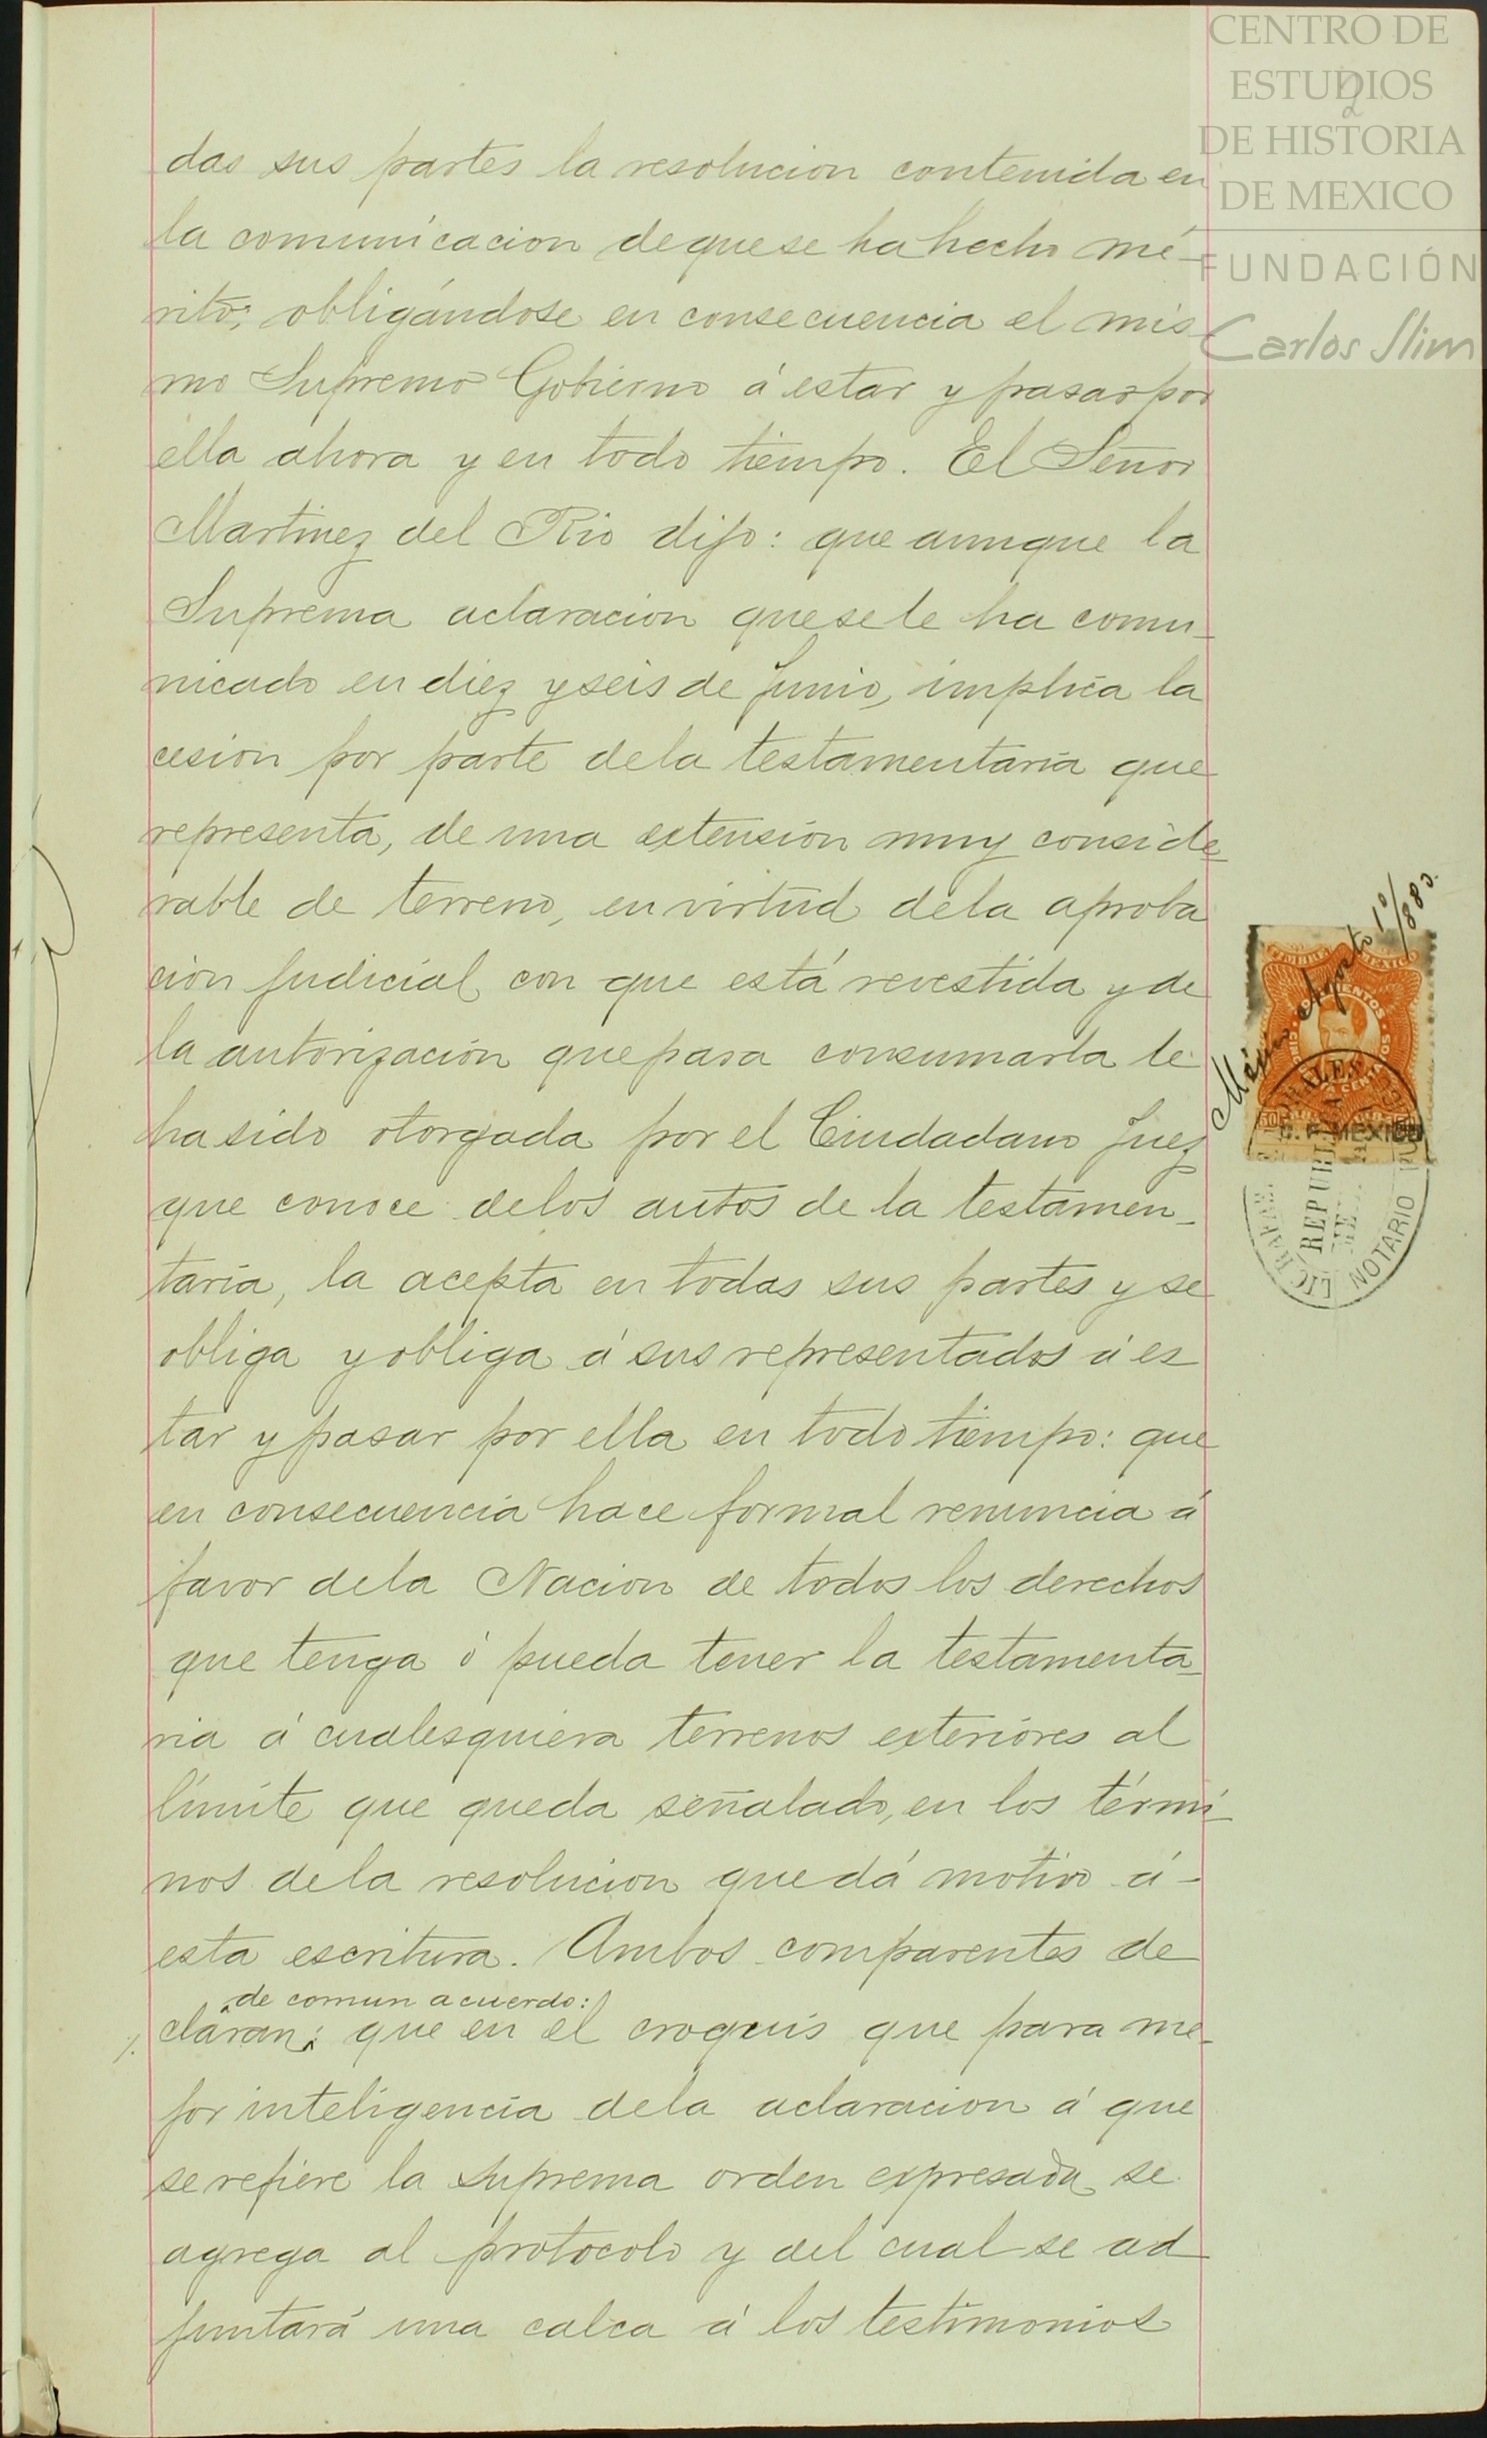 CENTRO DE
ESTUDIOS
DE HISTORIA
DE MEXICO
FUNDACIÓN
Carlos Slim
2
das sus partes la resolucion contenida en
la comunicacion de que se ha hecho mé-
rito; obligándose en consecuencia el mis-
mo Supremo Gobierno á estar y pasar por
ella ahora y en todo tiempo. El Señor
Martinez del Rio dijo: que aunque la
Suprema aclaracion que se le ha comu-
nicado en diez y seis de Junio, implica la
cesion por parte de la testamentaría que
representa, de una extensión muy conside-
rable de terreno, en virtud de la aproba
cion judicial con que está revestida y de
la autorización que para consumarla le
ha sido otorgada por el Ciudadano Juez
que conoce de los autos de la testamen-
taría, la acepta en todas sus partes y se
obliga y obliga á sus representados á es
tar y pasar por ella en todo tiempo: que
en consecuencia hace formal renuncia á
favor de la Nacion de todos los derechos
que tenga ó pueda tener la testamenta-
ria á cualesquiera terrenos exteriores al
límite que queda señalado, en los térmi-
nos de la resolucion que dá motivo á -
esta escritura. Ambos comparentes de
de comun acuerdo:
claran: que en el croquis que para me-
jor inteligencia de la aclaracion á que
se refiere la suprema orden expresada se
agrega al protocolo y del cual se ad
juntará una calca á los testimonios
Agosto 1º/
MEXICO
REPUBLI
NOTARIO
LIC